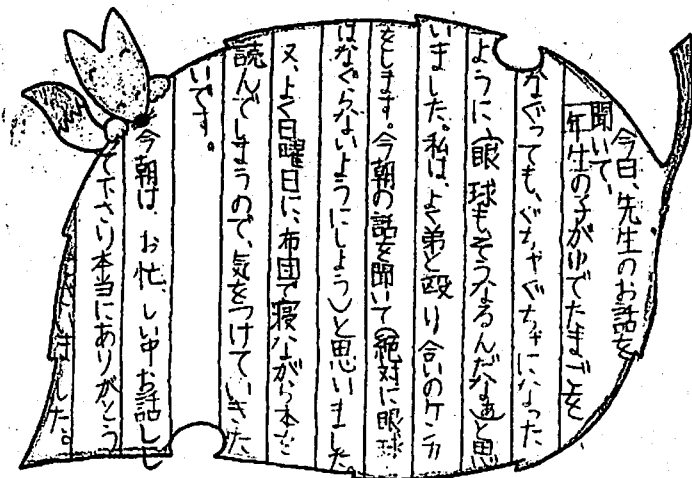 今日、先生のお話を
聞いて、
一年生の子がゆでたまごを
なぐっても、ぐちゃぐちゃになった
ように、眼球もそうなるんだなあと思
いました。私は、よく弟と殴り合いのケンカ
をします。今朝の話を聞いて(絶対に眼球
はなぐらないようにしよう)と思いました。
又、よく日曜日に、布団で寝ながら本を
読んでしまうので、気をつけていきた
いです。
今朝は、お忙しい中お話しし
て下さり本当にありがとう
ございました。